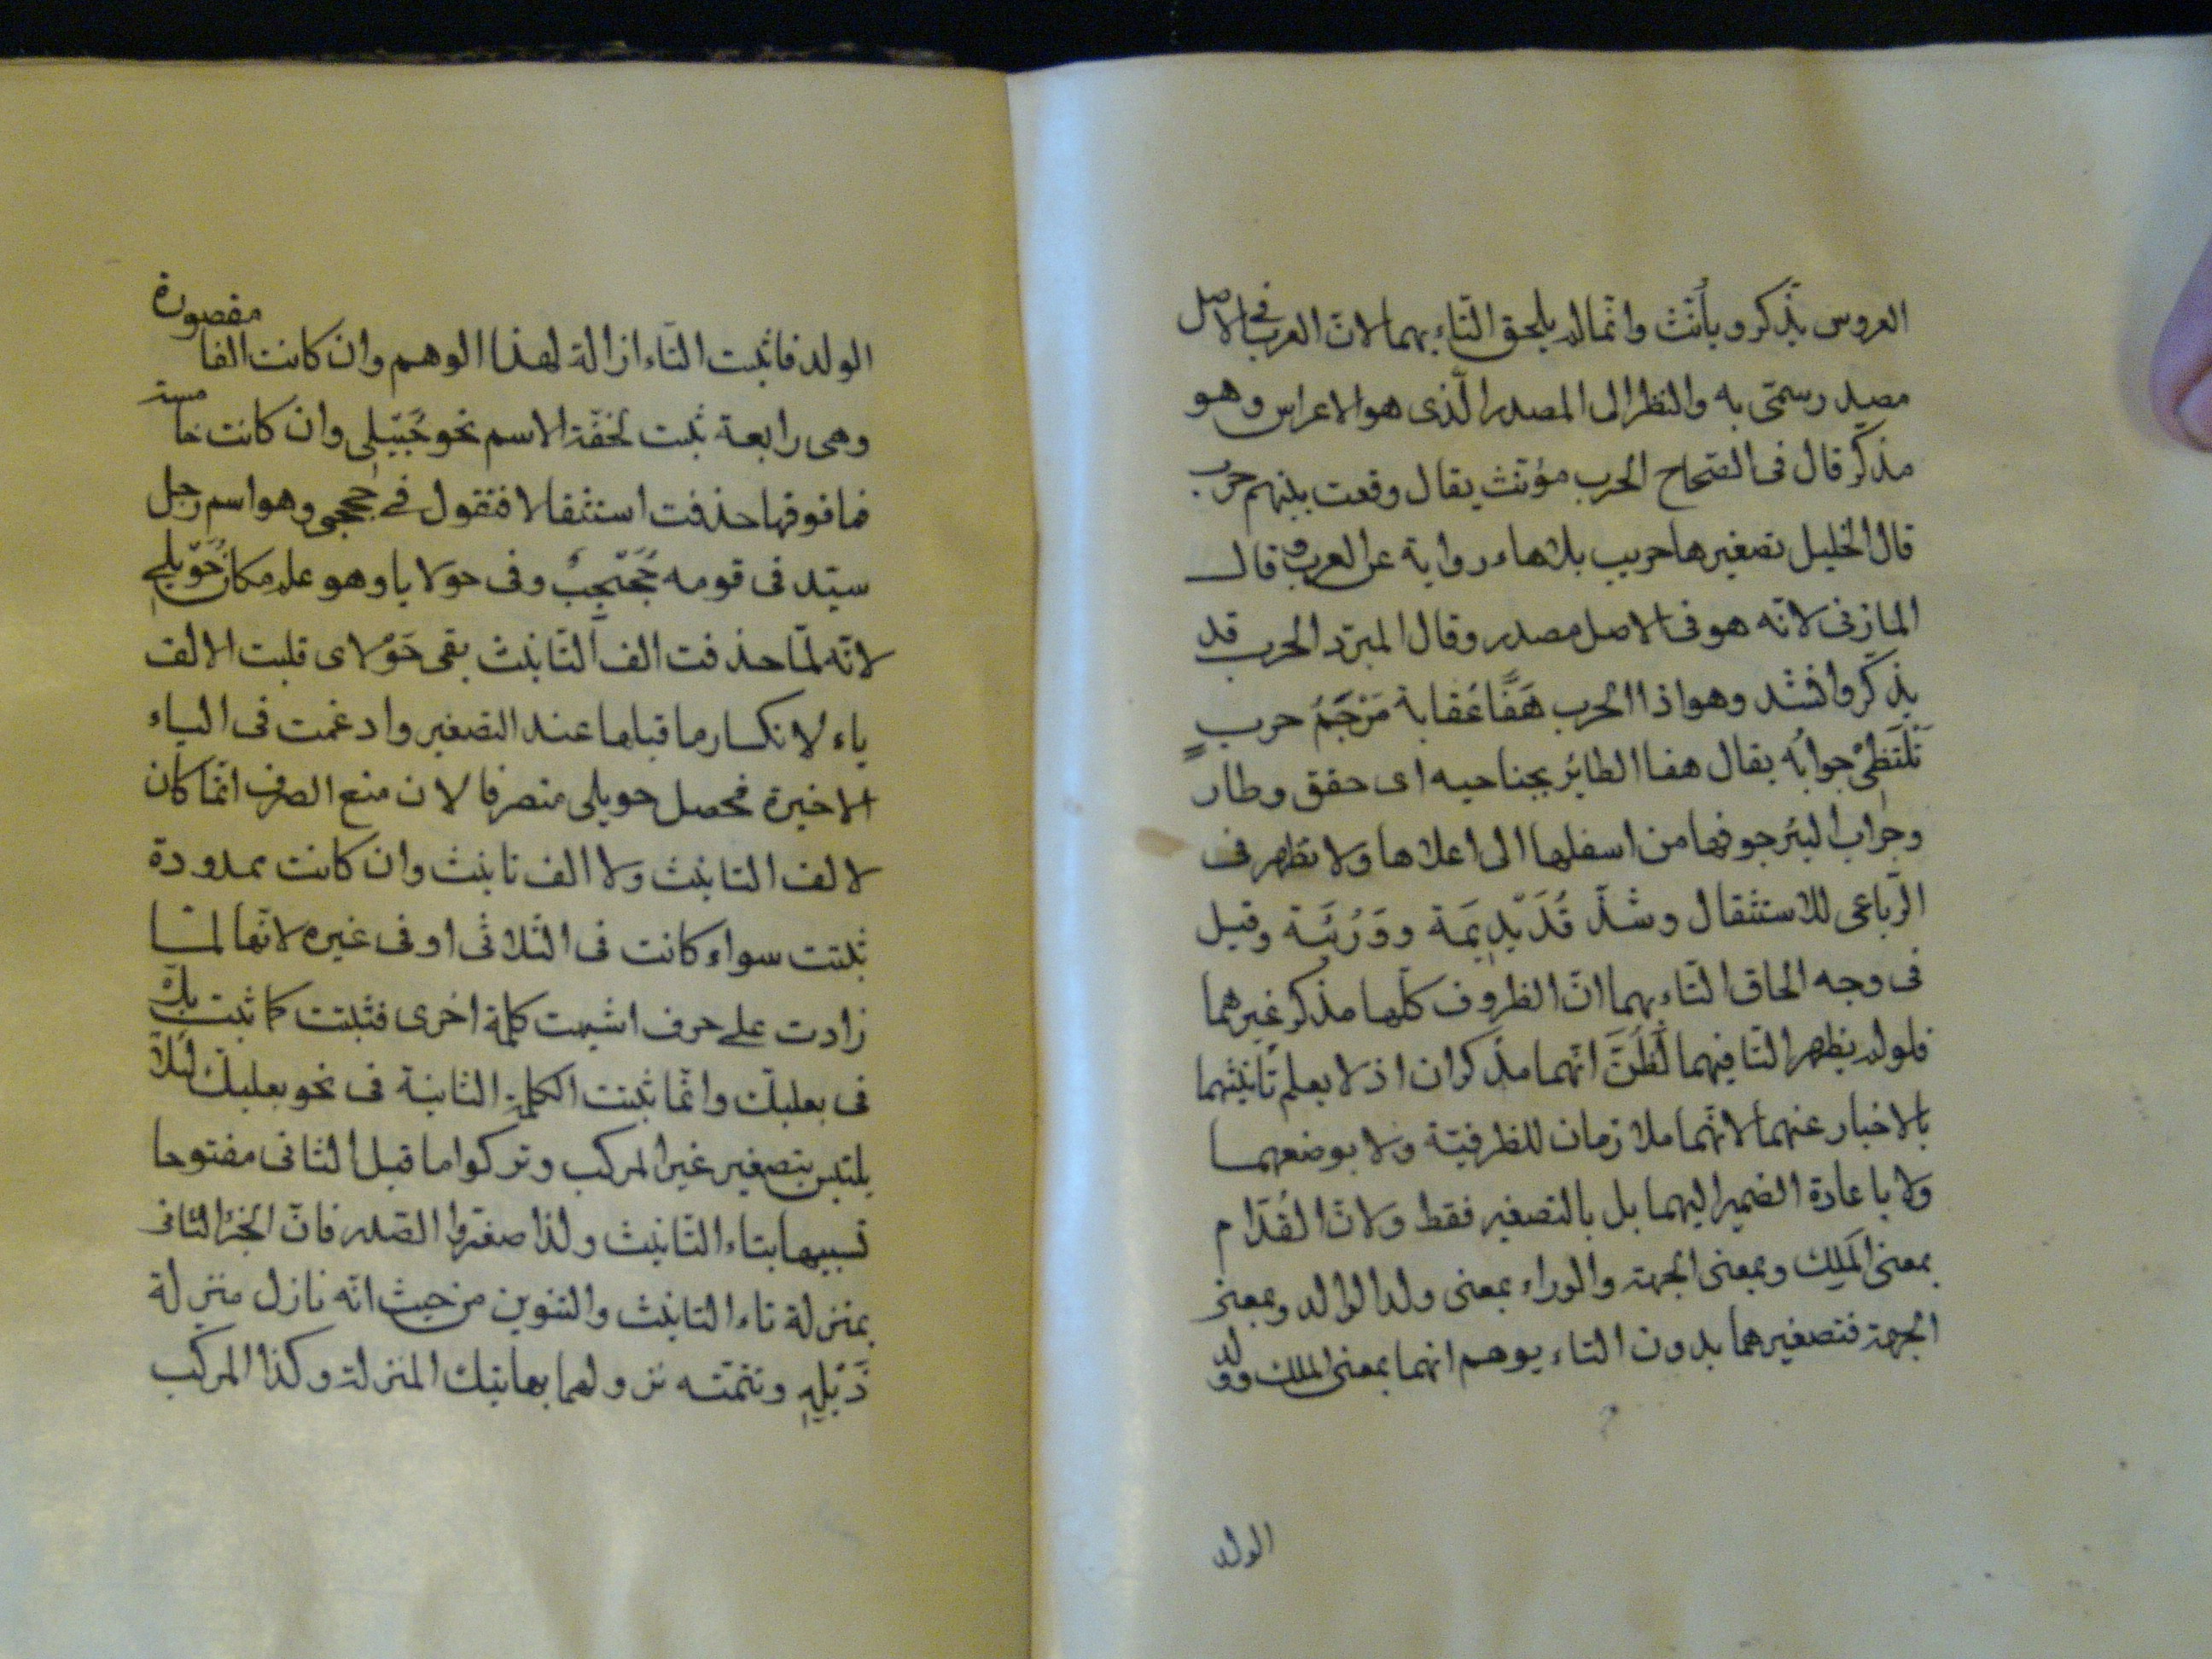 العروس يذكر ويأنث وانما لم يلحق التاء بهما لان العرب فى الاصل
مصدر سمى به والنظر الى المصدر الذى هو الاعراس وهو
مذكر قال فى الصحاح الحرب مؤنث يقال وقعت بينهم حرب
قال الخليل تصغيرها حريب بلا هاء رواية عن العرب و قال
المازنى لانه هو فى الاصل مصدر وقال المبرد الحرب قد
يذكر وانشد وهو اذا الحرب هَفَا عُقابة مَرْجَمُ حربٍ
تَلَتَظِىْ جوابُه يقال هفا الطائر بجناحيه اى حفق وطار
وجراب البئر جوفها من اسفلها الى اعلاها ولا تظهر فى
الرباعى للاستثقال وشذّ قُدَيْدِيمَة ووَرُئَيَة وقيل
فى وجه الحاق التاء بهما انّ الظروف كلّها مذكر غيرهما
فلو لم يظهر التا فيهما لَظُنَّ انّهما مذكران اذ لا يعلم تانيثهما
بالاخبار عنهما لانهما ملازمان للظرفيّة ولا بوضعهما
ولا باعادة الضمير اليهما بل بالتصغير فقط ولانّ القُدّام
بمعنى المَلِك وبمعنى الجهة والوراء بمعنى ولد الوالد وبمعنى
الجهة فتصغيرهما بدون التاء يوهم انهما بمعنى الملك وولد
الولد
الولد فاثبت التاء ازالة لهذا الوهم وان كانت الفا مقصورة
وهى رابعة ثبت لخفّة الاسم نحو حُبَيْلى وان كانت خامسة
فما فوقها حذفت استثقالا فتقول فى جحجبى وهو اسم رجل
سيّد فى قومه جُحَيْجِبٌ وفى حولايا وهو علم مكان حُوَيْلِىّ
لانّه لمّا حذفت الف التّانيث بقى حَوْلاى قلبت الالف
ياء لانكسار ما قبلها عند التصغير وادغمت فى الياء
الاخيرة فحصل حويلى منصرفا لان منع الصرف انّما كان
لالف التانيث ولا الف تانيث وان كانت ممدودة
ثبتت سواء كانت فى الثلاثى او فى غيره لانّها لمّا
زادت على حرف اشبهت كلمة اخرى فثبتت كما ثبت بكّ
فى بعلبكّ وانّما ثبتت الكلمة الثانية فى نحو بعلبك لئلّا
يلتبس بتصغير غير المركب وتركوا ما قبل الثانى مفتوحا
تشبيها بتاء التّانيث ولذا صغّروا الصّدر فانّ الجزء الثانى
بمنزلة تاء التانيث والتنوين من حيث انّه نازل منزلة
ذَيْلِهِ وتتمّته نزولهما بهاتيك المنزلة وكذا المركب